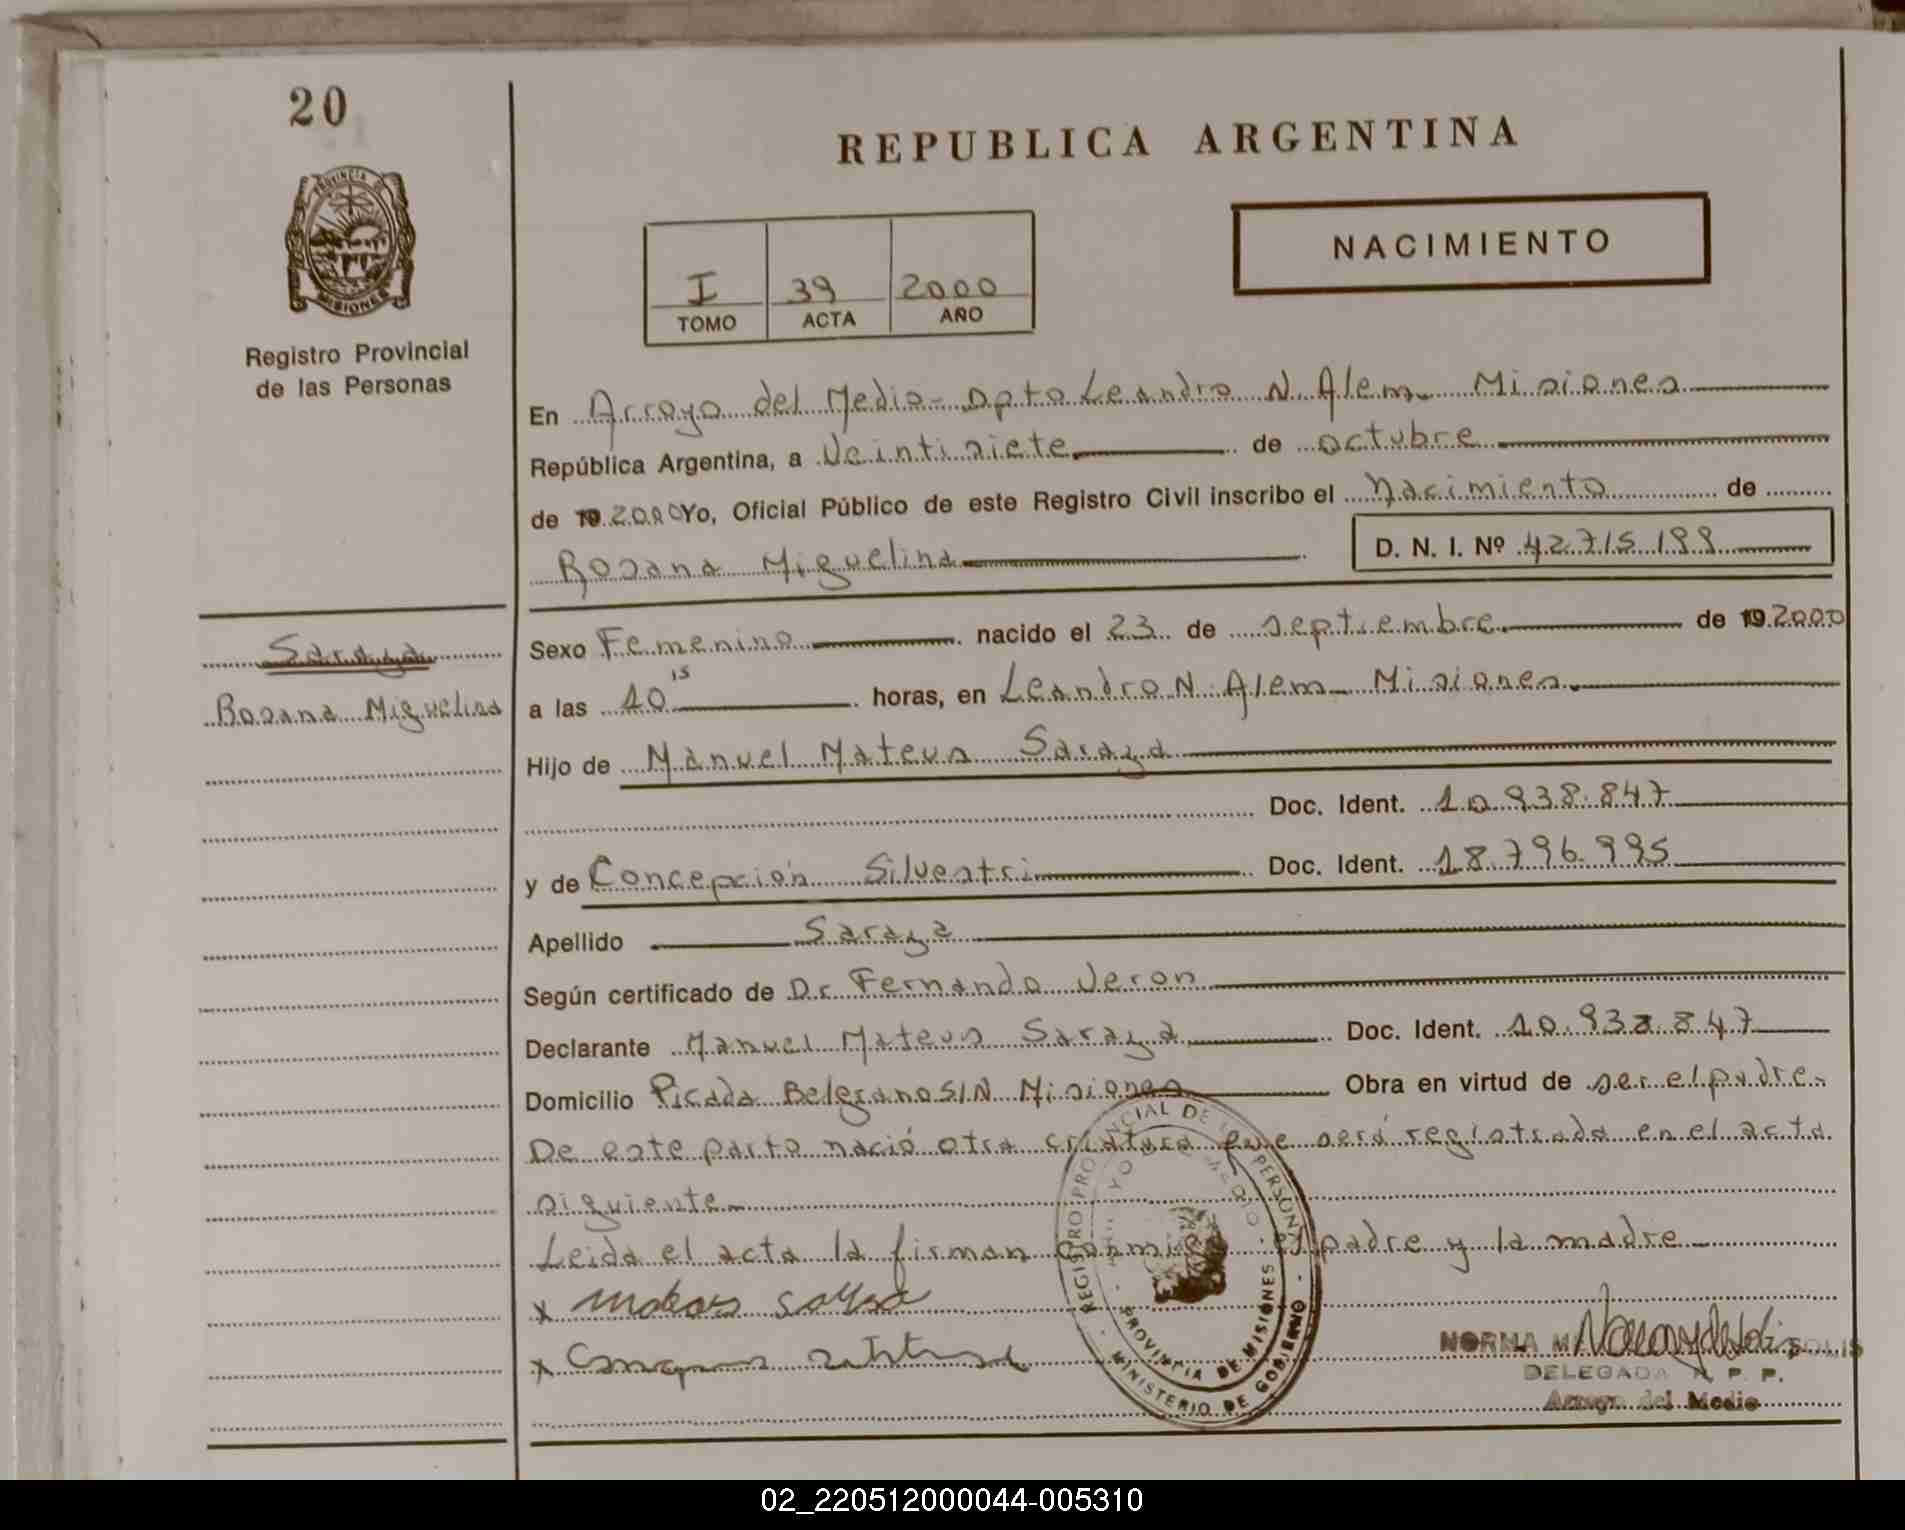 20
REPUBLICA ARGENTINA
NACIMIENTO
PROVINCIA DE
MISIONES
I 39 2000
TOMO ACTA AÑO
Registro Provincial
de las Personas
En Arroyo del Medio - Dpto Leandro N. Alem - Misiones
República Argentina, a Veintisiete de octubre
de 19 2000 Yo, Oficial Público de este Registro Civil inscribo el Nacimiento de
Rosana Miguelina D. N. I. Nº 42.715.199
Saraya
Sexo Femenino nacido el 23 de septiembre de 19 2000
Rosana Miguelina
a las 10 15 horas, en Leandro N. Alem - Misiones
Hijo de Manuel Mateus Saraya
Doc. Ident. 10.938.847
y de Concepción Silvestri Doc. Ident. 18.796.995
Apellido Saraya
Según certificado de Dr Fernando Veron
Declarante Manuel Mateus Saraya Doc. Ident. 10.938.847
Domicilio Picada Belgrano S/N Misiones Obra en virtud de ser el padre-
De este parto nació otra criatura que será registrada en el acta
siguiente-
Leida el acta la firman conmigo el padre y la madre-
x
x
REGISTRO PROVINCIAL DE PERSONAS
PROVINCIA DE MISIONES
MINISTERIO DE GOBIERNO
NORMA
DELEGADA R. P. P.
Arroyo del Medio
02_220512000044-005310